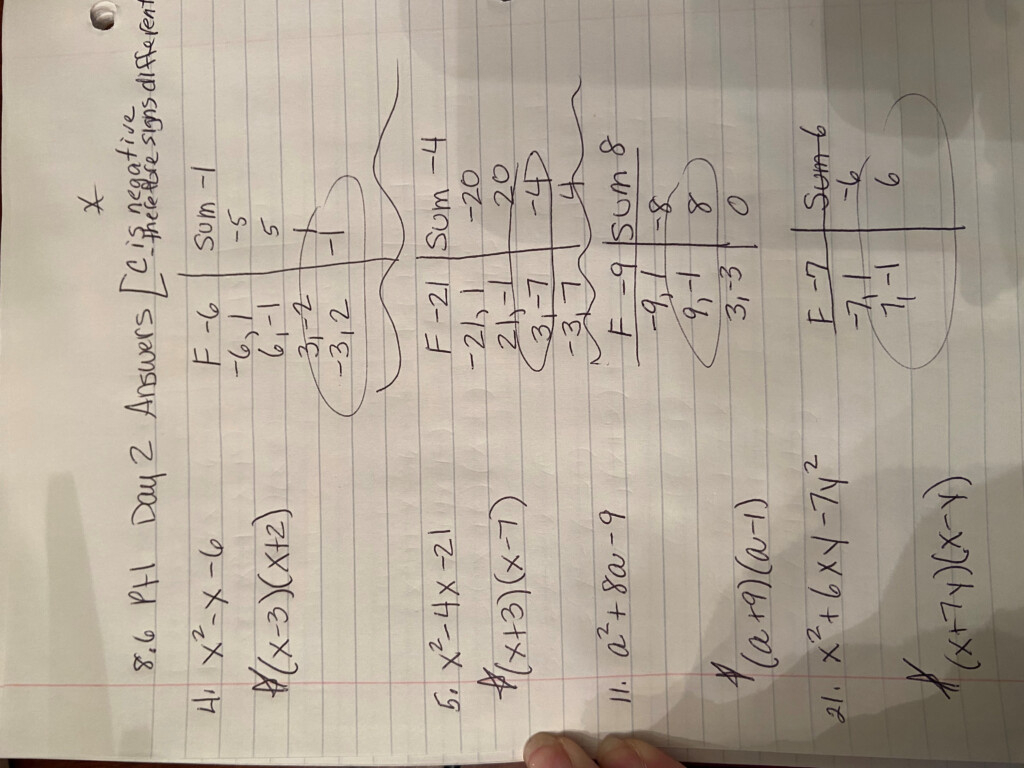 *
8.6 Pt 1 Day 2 Answers [C is negative
therefore signs different
4. x² - x - 6
F -6 | Sum -1
-6, 1 | -5
6, -1 | 5
3, -2 | 1
-3, 2 | -1
(x-3)(x+2)
5. x² - 4x - 21
F -21 | Sum -4
-21, 1 | -20
21, -1 | 20
3, -7 | -4
-3, 7 | 4
(x+3)(x-7)
11. a² + 8a - 9
F -9 | Sum 8
-9, 1 | -8
9, -1 | 8
3, -3 | 0
(a+9)(a-1)
21. x² + 6xy - 7y²
F -7 | Sum 6
-7, 1 | -6
7, -1 | 6
(x+7y)(x-y)